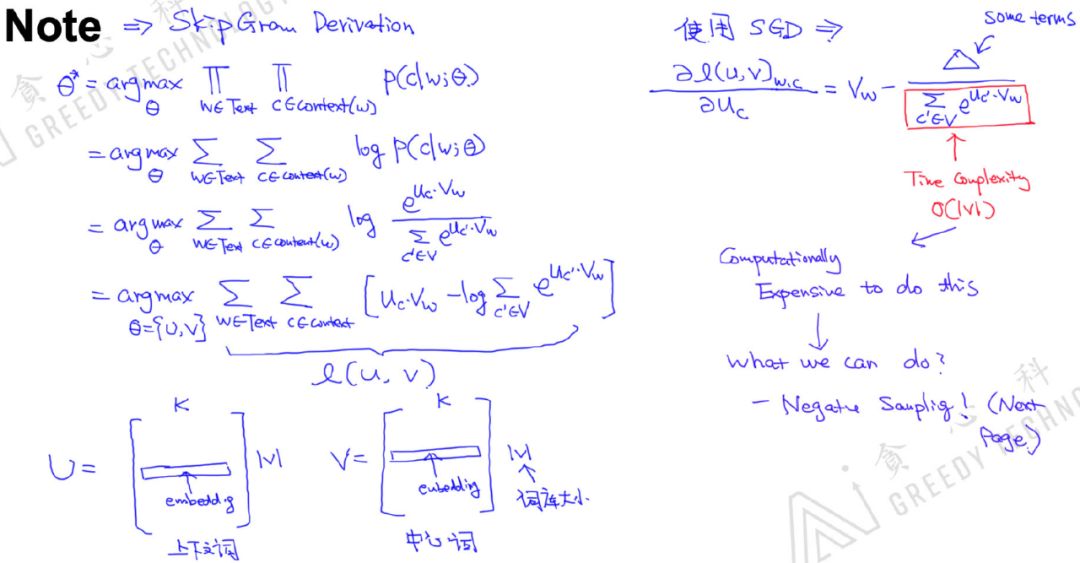 Note ⇒ Skip Gram Derivation
θ* = argmax_θ ∏_{w∈Text} ∏_{c∈Context(w)} p(c|w;θ)
= argmax_θ ∑_{w∈Text} ∑_{c∈Context(w)} log p(c|w;θ)
= argmax_θ ∑_{w∈Text} ∑_{c∈Context(w)} log e^{u_c·v_w} / ∑_{c'∈V} e^{u_c'·v_w}
= argmax_{θ={U,V}} ∑_{w∈Text} ∑_{c∈Context} [u_c·v_w - log ∑_{c'∈V} e^{u_c'·v_w}]
l(u, v)
K
U = [embedding] |V|
上下文词
K
V = [embedding] |V|
词库大小
中心词
使用 SGD ⇒
some terms
∂l(u,v)_{w,c} / ∂u_c = v_w - △ / ∑_{c'∈V} e^{u_c'·v_w}
Time Complexity
O(|V|)
Computationally
Expensive to do this
What we can do?
- Negative Sampling! (Next
Page)
貪心科
GREEDY TECHNOLOGY
貪心科
GREEDY TECHNO